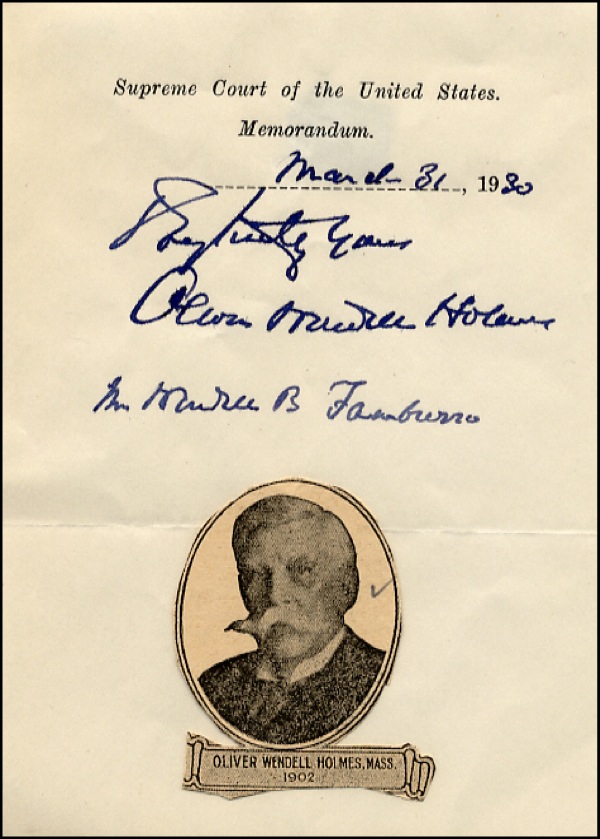 Supreme Court of the United States.
Memorandum.
March 31, 1930
Very truly yours
Oliver Wendell Holmes
Mr Wendell B Tamburro
OLIVER WENDELL HOLMES, MASS.
1902